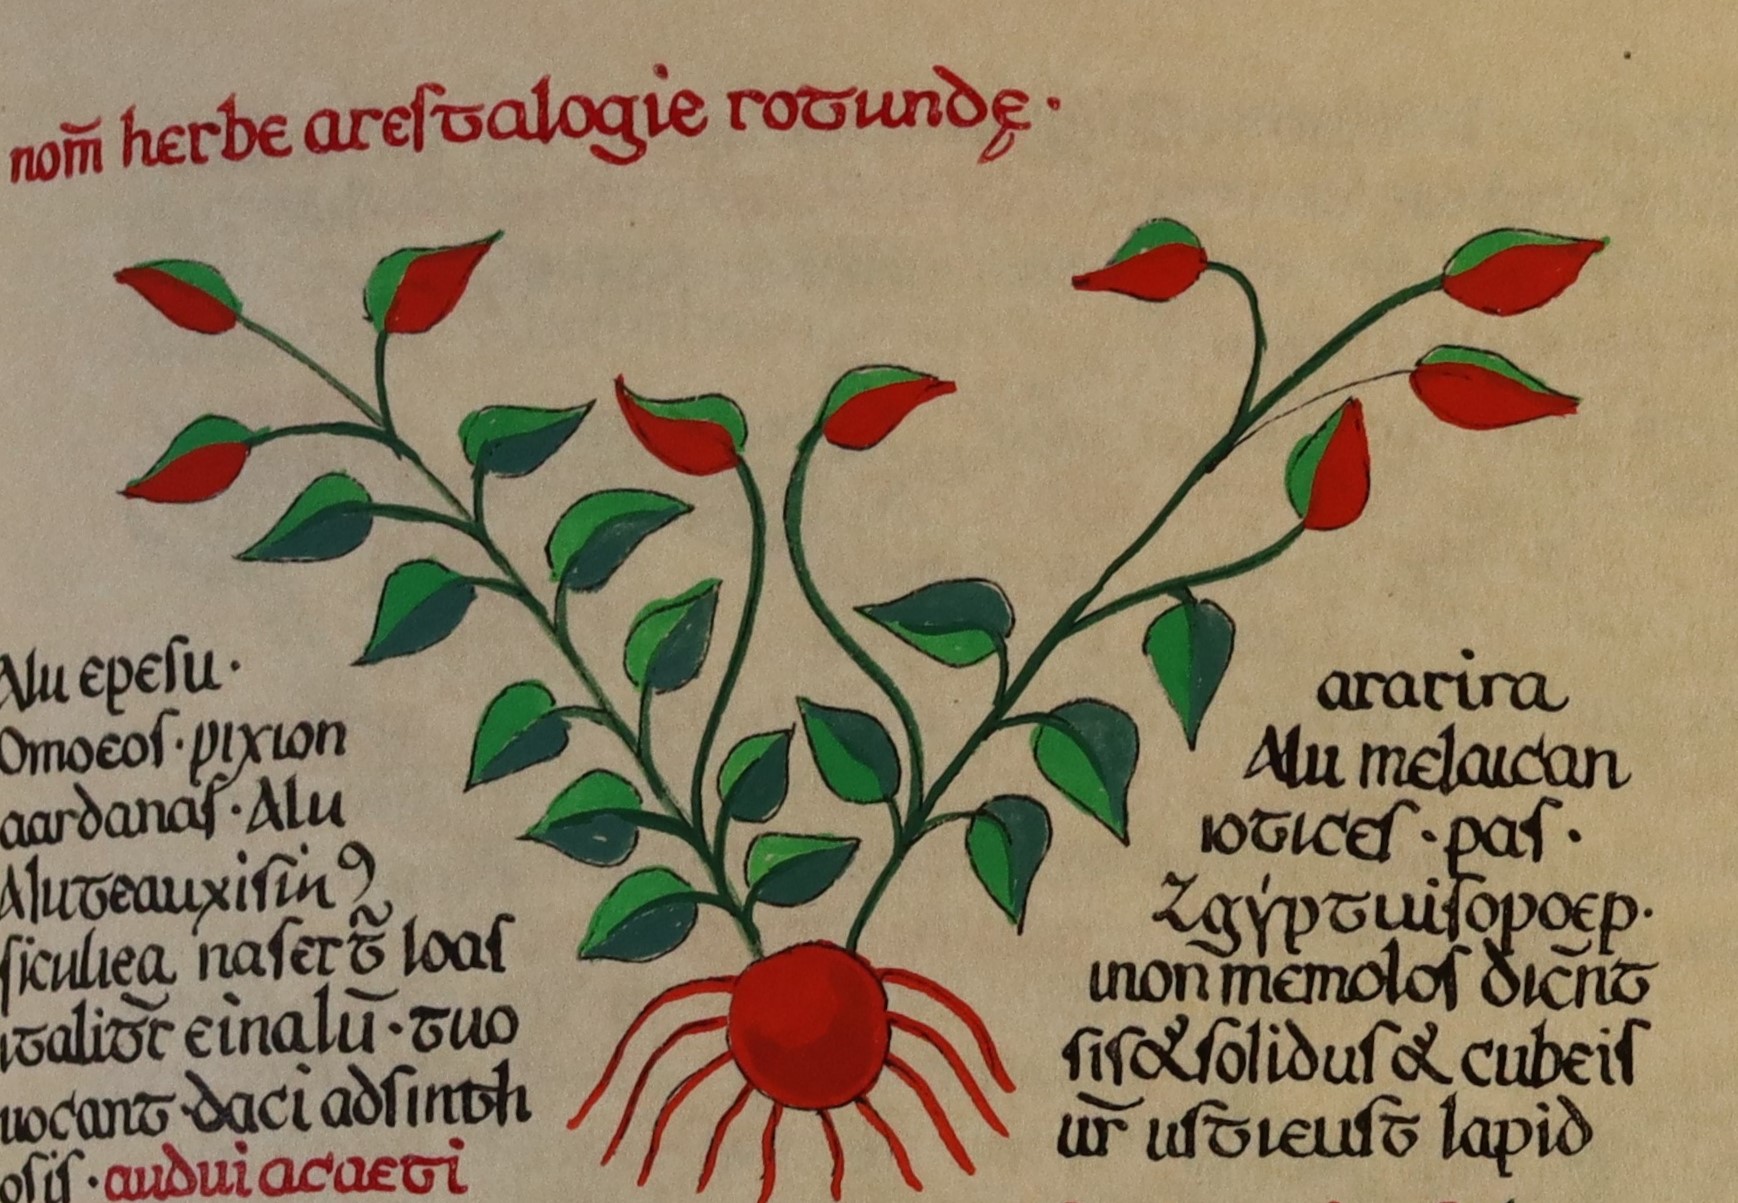 nom̄ herbe arestalogie rotundę·
Alu epesu·
Omoeos·pixion
aardanas·Alu
Aluteauxisin9
siculiea nasert̃ loas
italit̃r einalū·tuo
uocant·daci adsinth
osis·auduiacaeti
ararira
Alu melaican
iotices·pas·
Zgẏptuisopoep·
inon memolos dicñt
sis&solidus & cubeis
ur̄ ustieust lapid